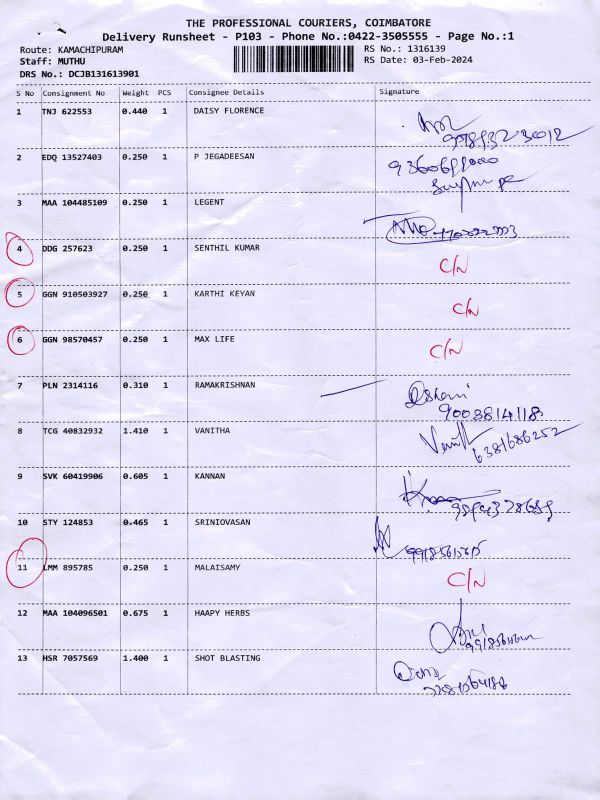 THE PROFESSIONAL COURIERS, COIMBATORE
Delivery Runsheet - P103 - Phone No.:0422-3505555 - Page No.:1
Route: KAMACHIPURAM RS No.: 1316139
Staff: MUTHU RS Date: 03-Feb-2024
DRS No.: DCJB131613901
S No Consignment No Weight PCS Consignee Details Signature
1 TNJ 622553 0.440 1 DAISY FLORENCE
2 EDQ 13527403 0.250 1 P JEGADEESAN
3 MAA 104485109 0.250 1 LEGENT
4 DDG 257623 0.250 1 SENTHIL KUMAR C/N
5 GGN 910503927 0.250 1 KARTHI KEYAN C/N
6 GGN 98570457 0.250 1 MAX LIFE C/N
7 PLN 2314116 0.310 1 RAMAKRISHNAN
9003814118
8 TCG 40832932 1.410 1 VANITHA
6381686252
9 SVK 60419906 0.605 1 KANNAN
10 STY 124853 0.465 1 SRINIOVASAN
11 LMM 895785 0.250 1 MALAISAMY C/N
12 MAA 104096501 0.675 1 HAAPY HERBS
13 HSR 7057569 1.400 1 SHOT BLASTING